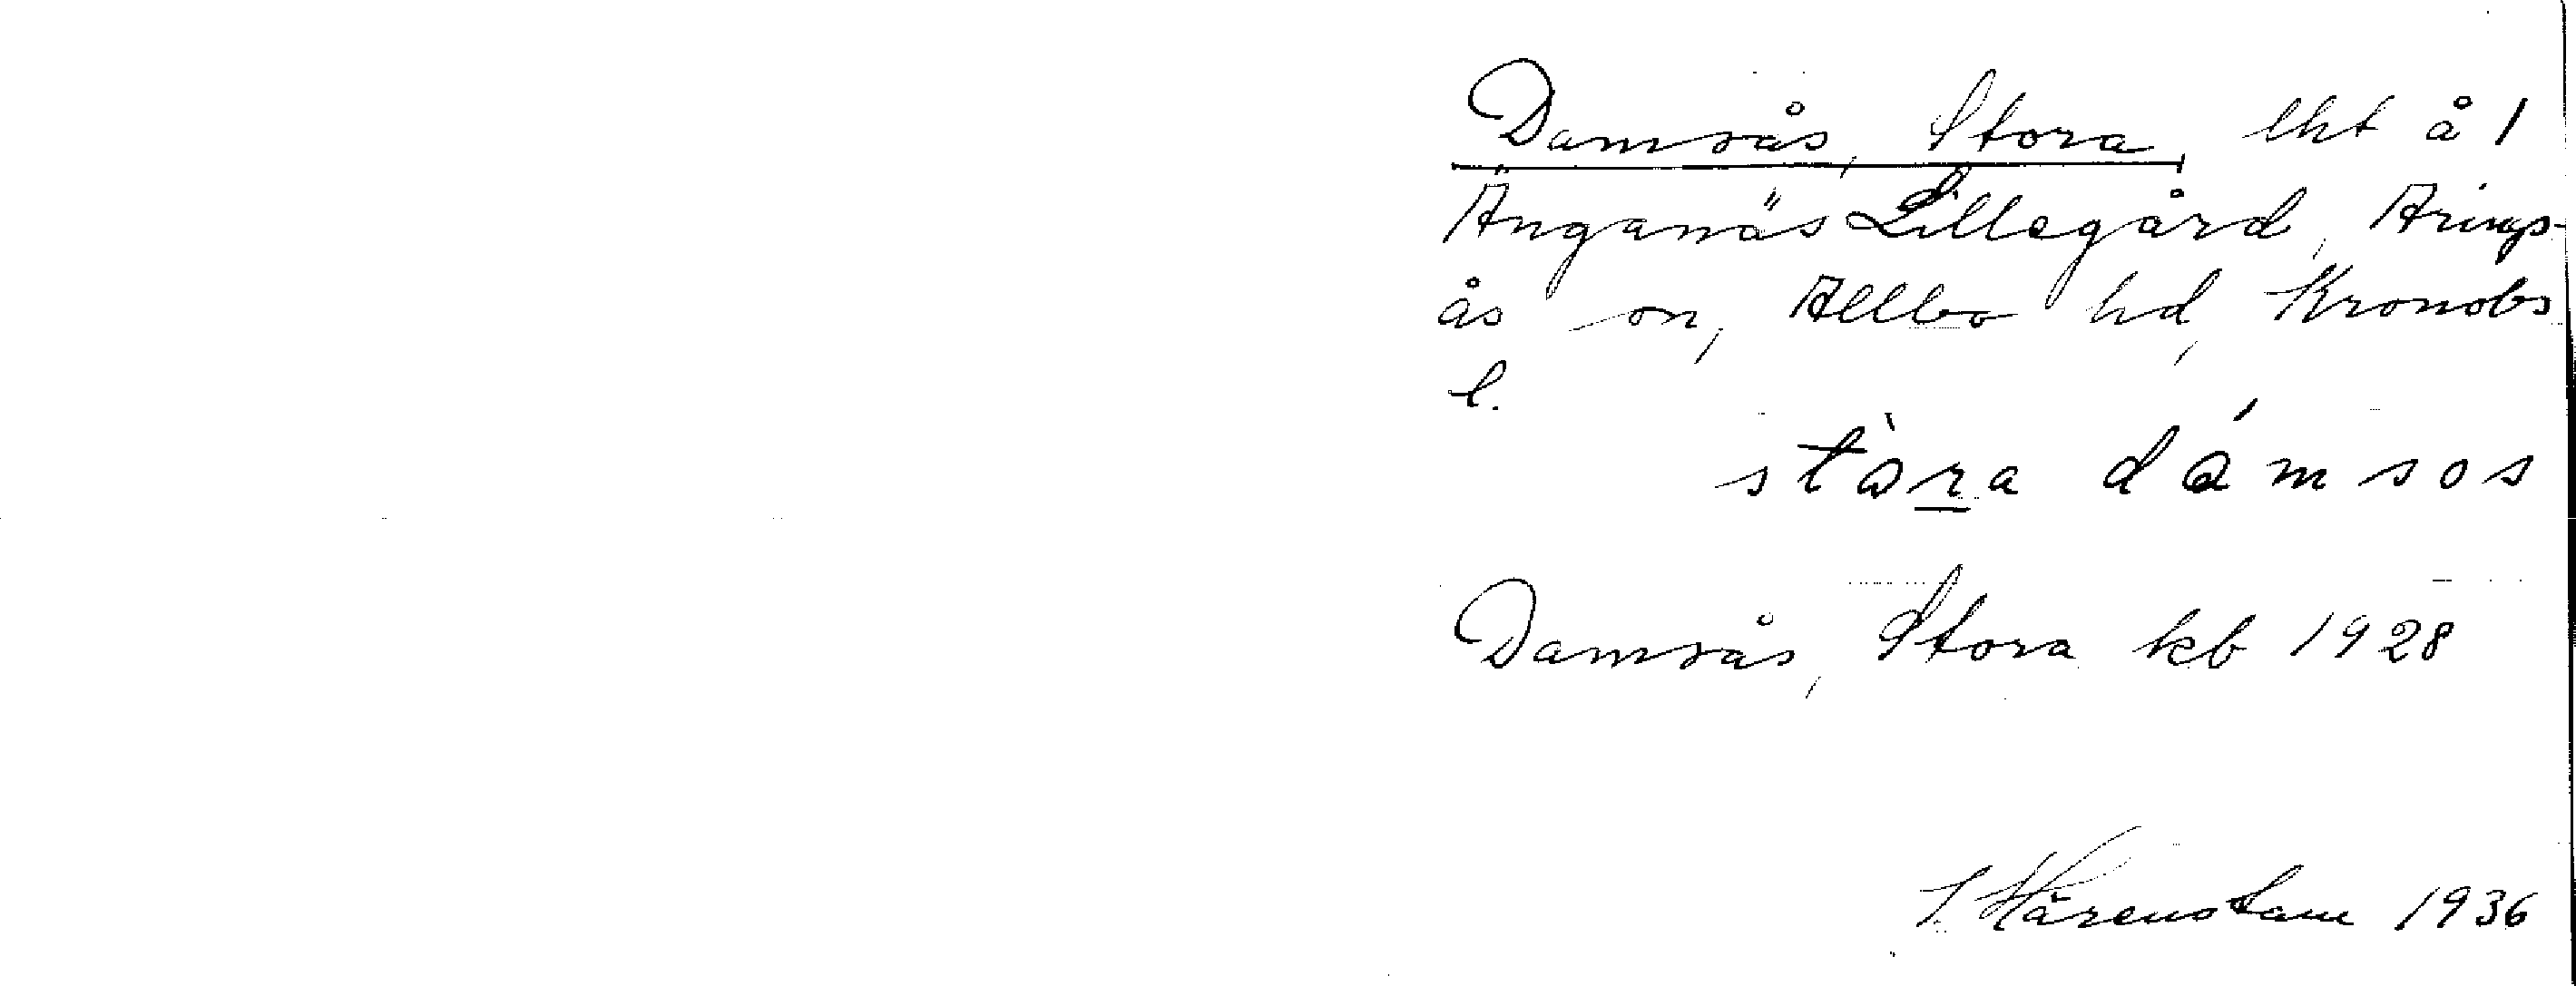 Damsås, Stora, lht å 1
Änganäs Lillegård, Arings-
ås sn, Allbo hd, Kronobs
l.
stòra dámsos
Damsås, Stora kb 1928
S. Hårenstam 1936